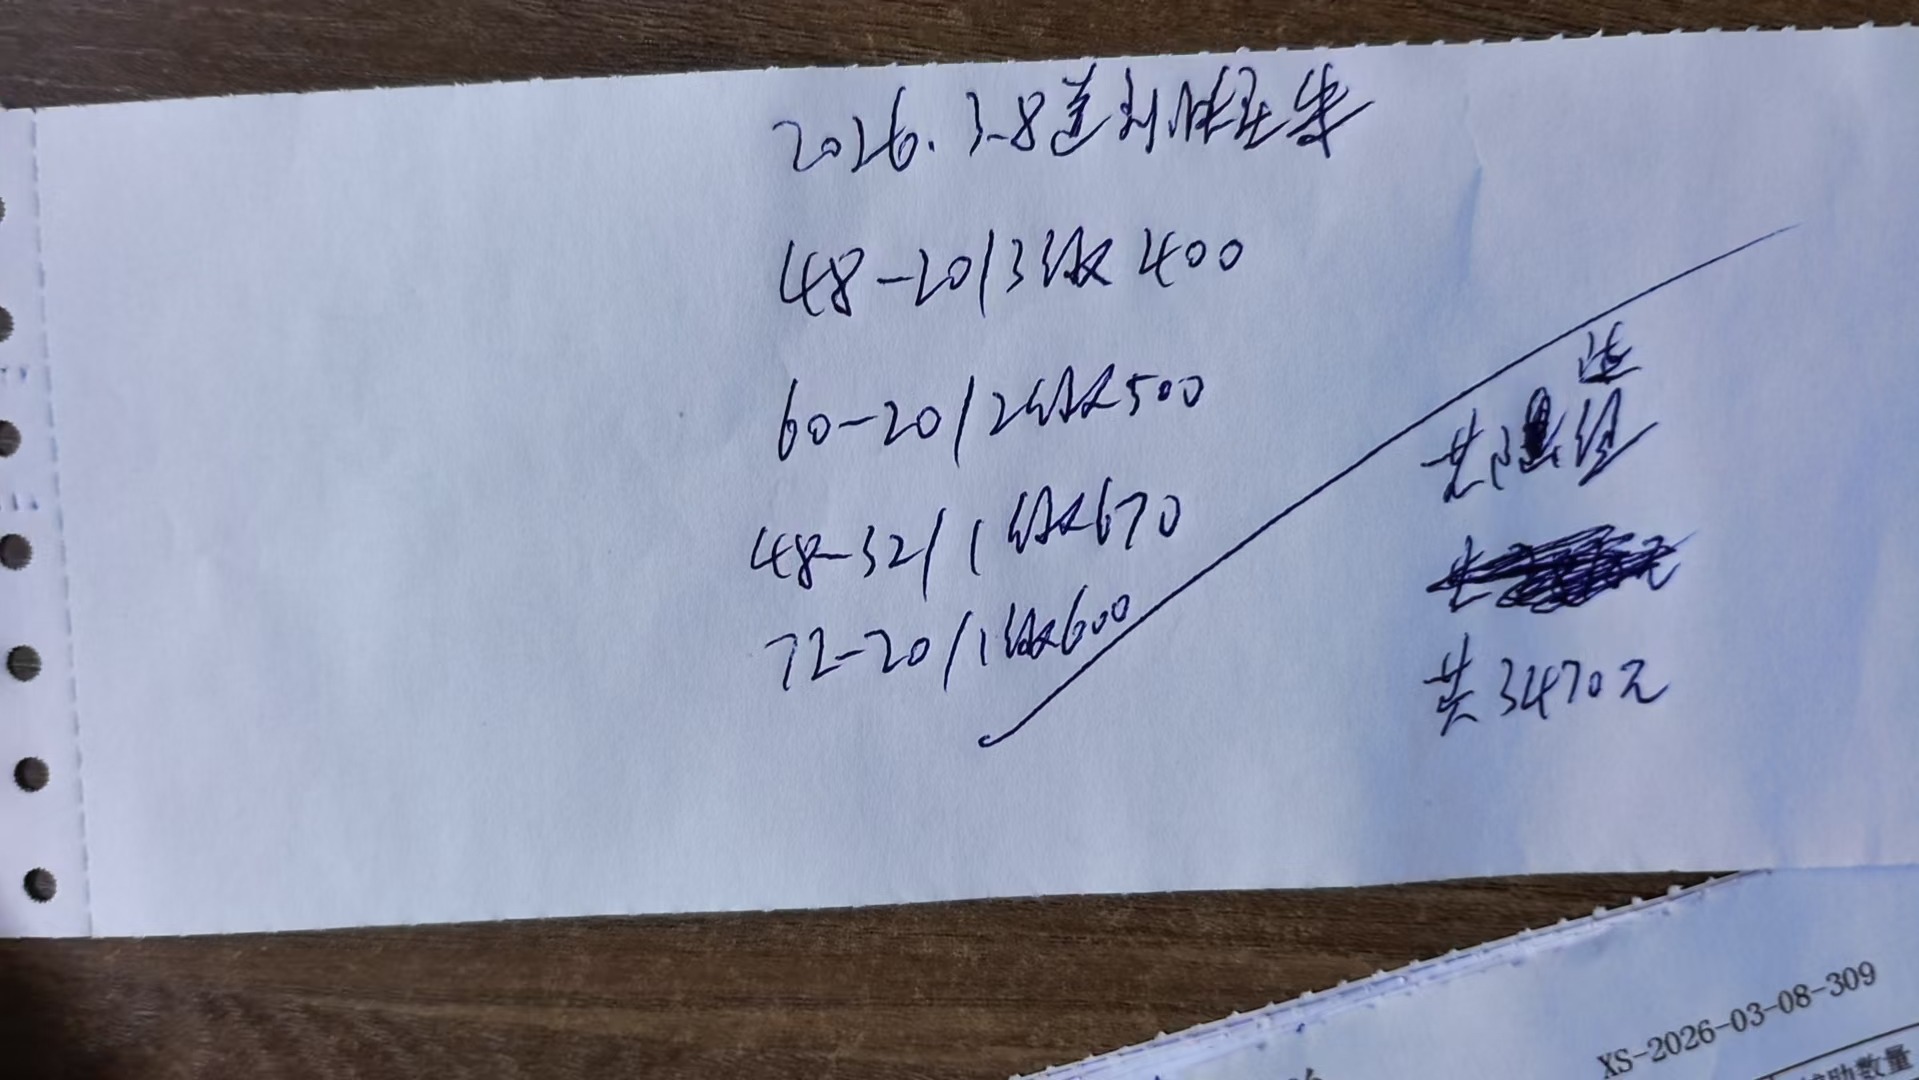 2026.3.8送到胜旺集
48-20/3级400
60-20/2级500
48-32/1级670
72-20/1级600
送
共
共3470元
XS-2026-03-08-309
辅助数量